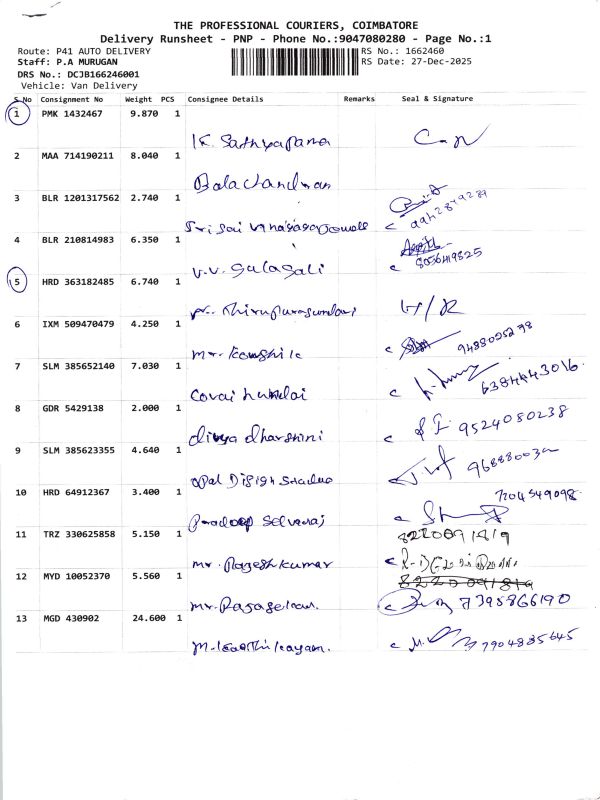 THE PROFESSIONAL COURIERS, COIMBATORE
Delivery Runsheet - PNP - Phone No.:9047080280 - Page No.:1
Route: P41 AUTO DELIVERY RS No.: 1662460
Staff: P.A MURUGAN RS Date: 27-Dec-2025
DRS No.: DCJB166246001
Vehicle: Van Delivery
S.No Consignment No Weight PCS Consignee Details Remarks Seal & Signature
1 PMK 1432467 9.870 1
K. Sathyaparna
2 MAA 714190211 8.040 1
Balachandran
3 BLR 1201317562 2.740 1
Sri Sai
4 BLR 210814983 6.350 1
8056419825
V.V.
5 HRD 363182485 6.740 1
6 IXM 509470479 4.250 1
Mr. Kowshik
7 SLM 385652140 7.030 1
Covai
8 GDR 5429138 2.000 1
divya dharshini 9524080238
9 SLM 385623355 4.640 1
10 HRD 64912367 3.400 1
7204549098
Pradeep Selvaraj
11 TRZ 330625858 5.150 1
Mr. Rageshkumar
12 MYD 10052370 5.560 1
7395866190
13 MGD 430902 24.600 1
M. Karthikayan. 7904835645